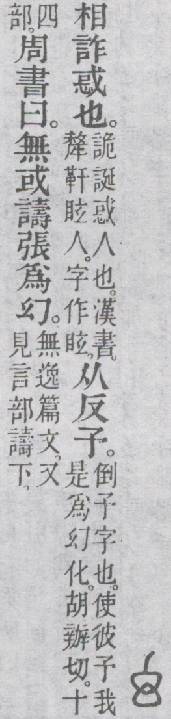 相詐惑也。詭誕惑人也。漢書犛靬眩人。字作眩。从反予。倒予字也。使彼予我是爲幻化。胡辦切。十
四部。周書曰。無或譸張爲幻。無逸篇文。又見言部譸下。